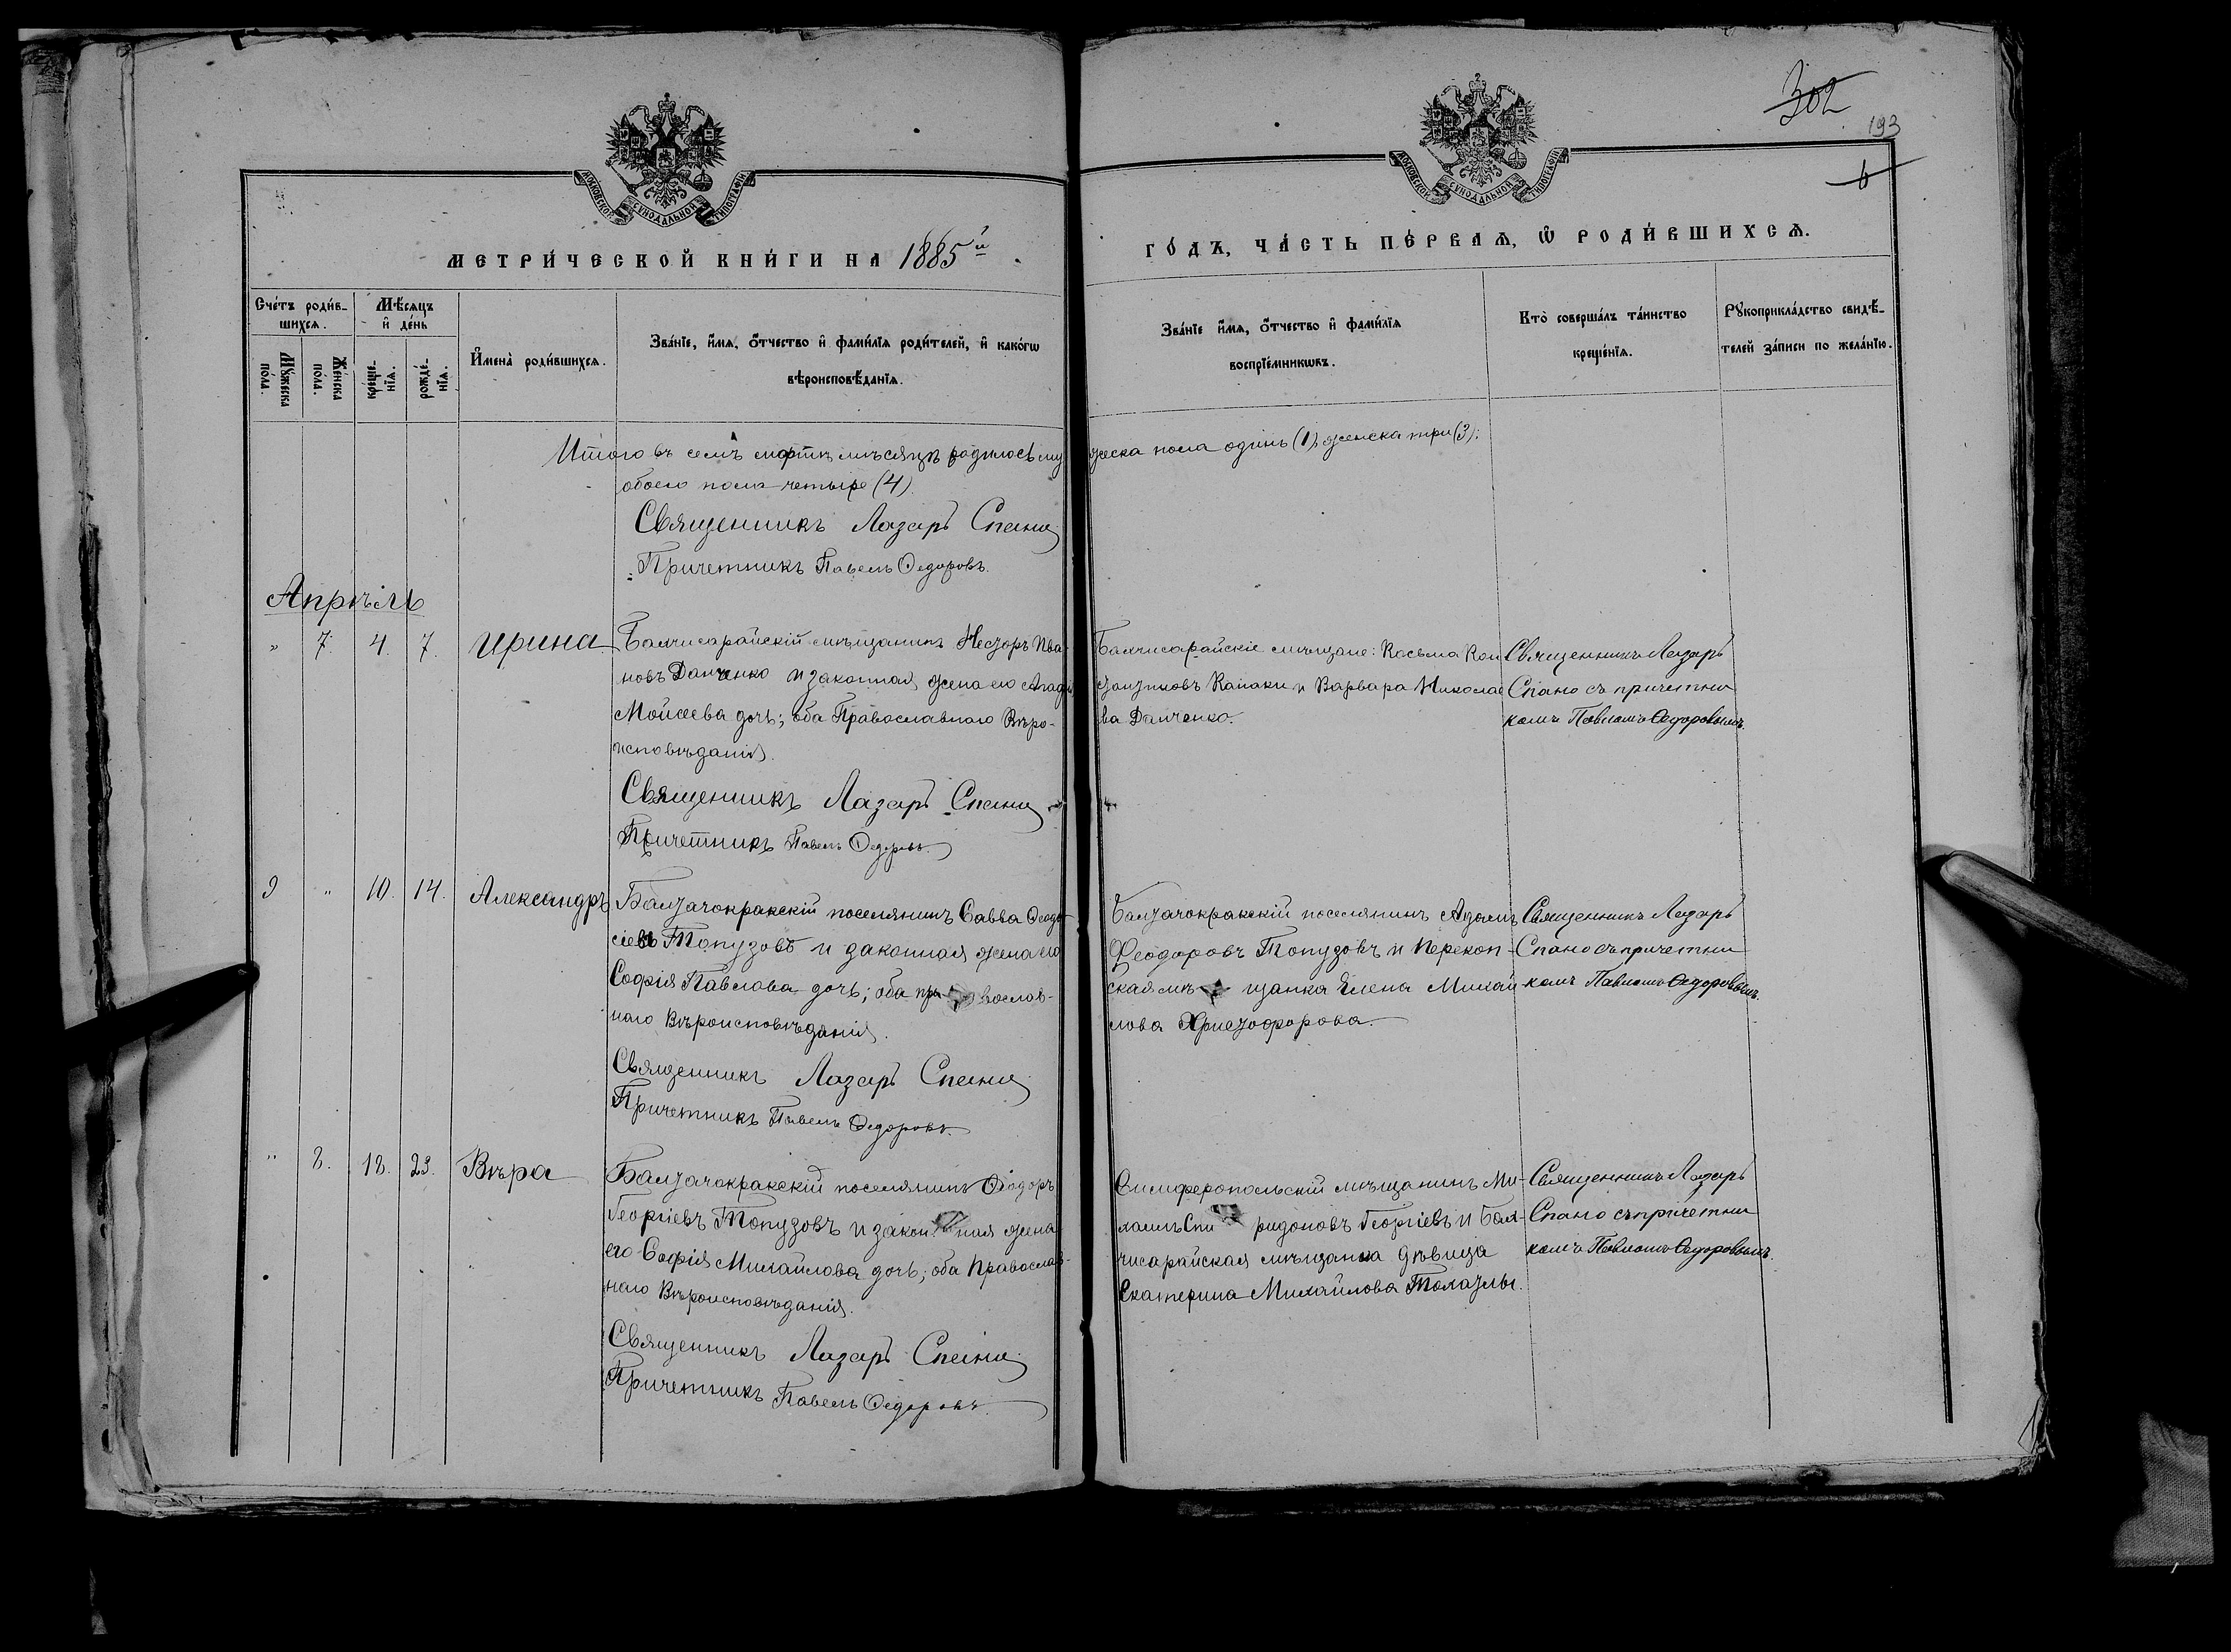 302
193
6
МОСКОВСКОЙ СѴНОДАЛЬНОЙ ТИПОГРАФІИ
МОСКОВСКОЙ СѴНОДАЛЬНОЙ ТИПОГРАФІИ
МЕТРИ́ЧЕСКОЙ КНИ́ГИ НА 1885й
ГО́ДЪ, ЧА́СТЬ ПЕ́РВАѦ, Ѽ РОДИ́ВШИХСѦ.
Сче́тъ роди́в-
шихсѧ.
Мѣ́сѧцъ
и де́нь
Мꙋ́жеска
по́ла.
Же́нска
по́ла.
креще́-
нїѧ.
рожде́-
нїѧ.
Имена̀ роди́вшихсѧ.
Зва́нїе, и́мѧ, о́тчество и фами́лїѧ роди́телей, и како́гѡ
вѣроисповѣ́данїѧ.
Зва́нїе и́мѧ, о́тчество и фами́лїѧ
воспрїе́мникѡвъ.
Кто̀ соверша́лъ та́инство
креще́нїѧ.
Рꙋкоприкла́дство свидѣ́-
телей за́писи по жела́нїю.
Итого въ семъ мартѣ мѣсяцѣ родилось му
жеска пола одинъ (1), женска три (3);
обоего пола четыре (4).
Священникъ Лазарь Спано
Причетникъ Павелъ Ѳедоровъ.
Апрѣль
" 7. 4. 7. Ирина
Бахчисарайскій мѣщанинъ Несторъ Ива-
новъ Данченко и законная жена его
Моисеева дочь; оба Православнаго Вѣро-
исповѣданія.
Священникъ Лазарь Спано
Причетникъ Павелъ Ѳедоровъ.
Бахчисарайскіе мѣщане: Косьма Кон
стантиновъ Капаки и Варвара Николае
ва Данченко.
Священникъ Лазарь
Спано съ причетни
комъ Павломъ Ѳедоровымъ.
9 " 10. 14. Александръ
Балтачокракскій поселянинъ Савва Ѳеодо-
сіевъ Топузовъ и законная жена его
Софія Павлова дочь; оба пра вослав-
наго Вѣроисповѣданія.
Священникъ Лазарь Спано
Причетникъ Павелъ Ѳедоровъ.
Балтачокракскій поселянинъ Адамъ
Феодоровъ Топузовъ и Перекоп-
ская мѣ щанка Елена Михай
лова Христофорова.
Священникъ Лазарь
Спано съ причетни
комъ Павломъ Ѳедоровымъ.
" 8. 18. 23. Вѣра
Балтачокракскій поселянинъ Ѳіодоръ
Георгіевъ Топузовъ и закон ная жена
его София Михайлова дочь; оба Православ-
наго Вѣроисповѣданія.
Священникъ Лазарь Спано
Причетникъ Павелъ Ѳедоровъ.
Симферопольскій мѣщанинъ Ми-
хаилъ Спи ридоновъ Георгіевъ и Бах-
чисарайская мѣщанка дѣвица
Екатерина Михайлова
Священникъ Лазарь
Спано съ причетни
комъ Павломъ Ѳедоровымъ.